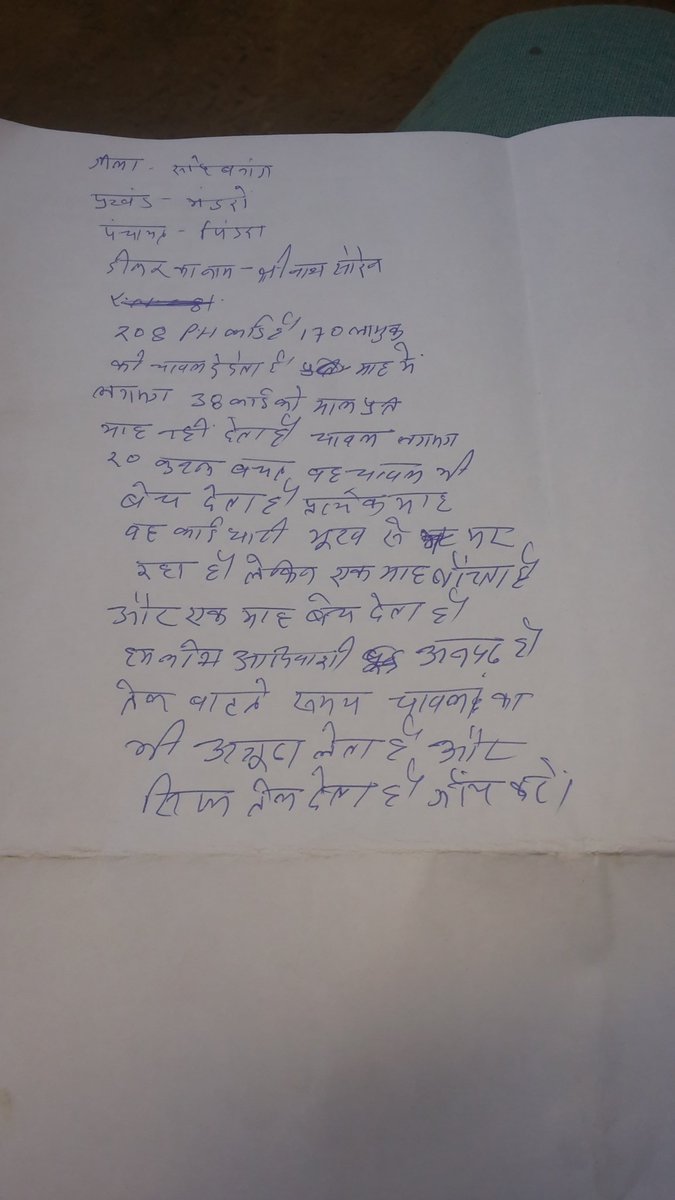 जीला - साहेबगंज
प्रखंड - मंडरो
पंचायत - पिंडरा
डीलर का नाम - श्रीनाथ सोरेन
208 PH कार्ड है 170 लाभुक
को चावल दे देता है माह में
लगभग 38 कार्ड को माल प्रति
माह नही देता है चावल लगभग
20 बचत वह चावल भी
बेच देता है प्रत्येक माह
वह कार्ड धारी भूख से मर
रहा है लेकिन एक माह बाँटता है
और एक माह बेच देता है
हमलोग आदिवाशी अनपढ है
तेल बाटते समय चावल का
भी अंगूठा लेता है और
सिर्फ तेल देता है जाँच करें।